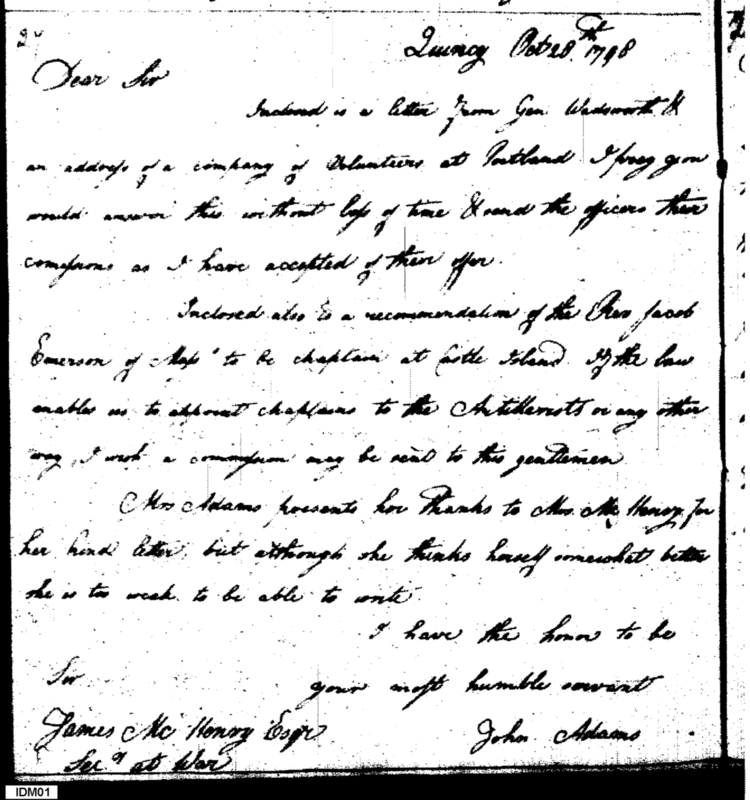 Quincy Oct 28th 1798
Dear Sir
Inclosed is a letter from Gen. Wadsworth &
an address of a company of Volunteers at Portland I pray you
would answer this without loss of time & send the officers their
comissions as I have accepted of their offer.
Inclosed also is a recommendation of the Rev Jacob
Emerson of Mass ts to be chaplain at Castle Island. If the law
enables us to appoint chaplains to the Artillerists or any other
way, I wish a commission may be sent to this gentlemen
Mrs Adams presents her Thanks to Mrs. Mc Henry for
her kind letter, but although she thinks herself somewhat better
she is too weak to be able to write
I have the honor to be
Sir your most humble servant
James Mc Henry Esqr John Adams
Secy at War
IDM01